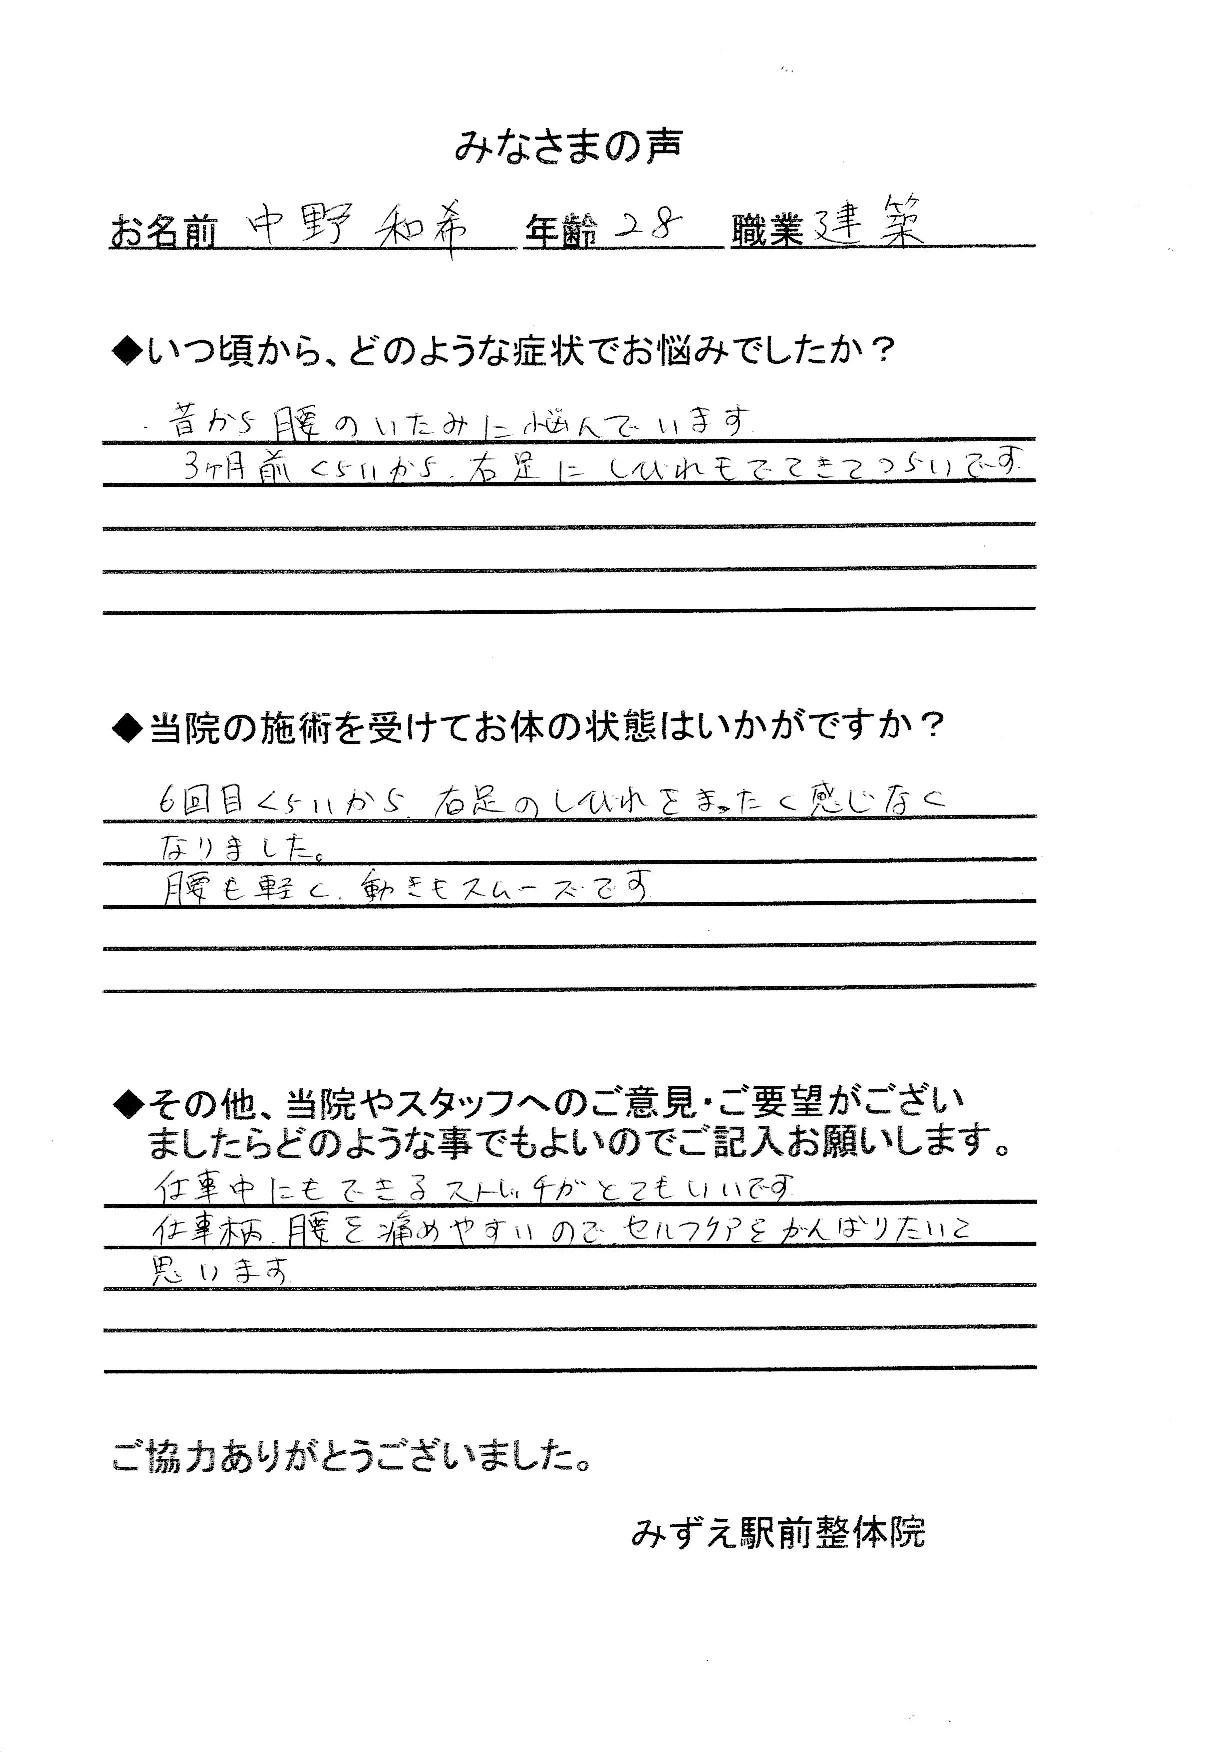 みなさまの声
お名前 中野 和希 年齢 28 職業 建築
◆いつ頃から、どのような症状でお悩みでしたか？
昔から腰のいたみに悩んでいます
3ヶ月前くらいから、右足にしびれもでてきてつらいです
◆当院の施術を受けてお体の状態はいかがですか？
6回目くらいから、右足のしびれをまったく感じなく
なりました。
腰も軽く、動きもスムーズです
◆その他、当院やスタッフへのご意見・ご要望がござい
ましたらどのような事でもよいのでご記入お願いします。
仕事中にもできるストレッチがとてもいいです
仕事柄、腰を痛めやすいので セルフケアをがんばりたいと
思います
ご協力ありがとうございました。
みずえ駅前整体院